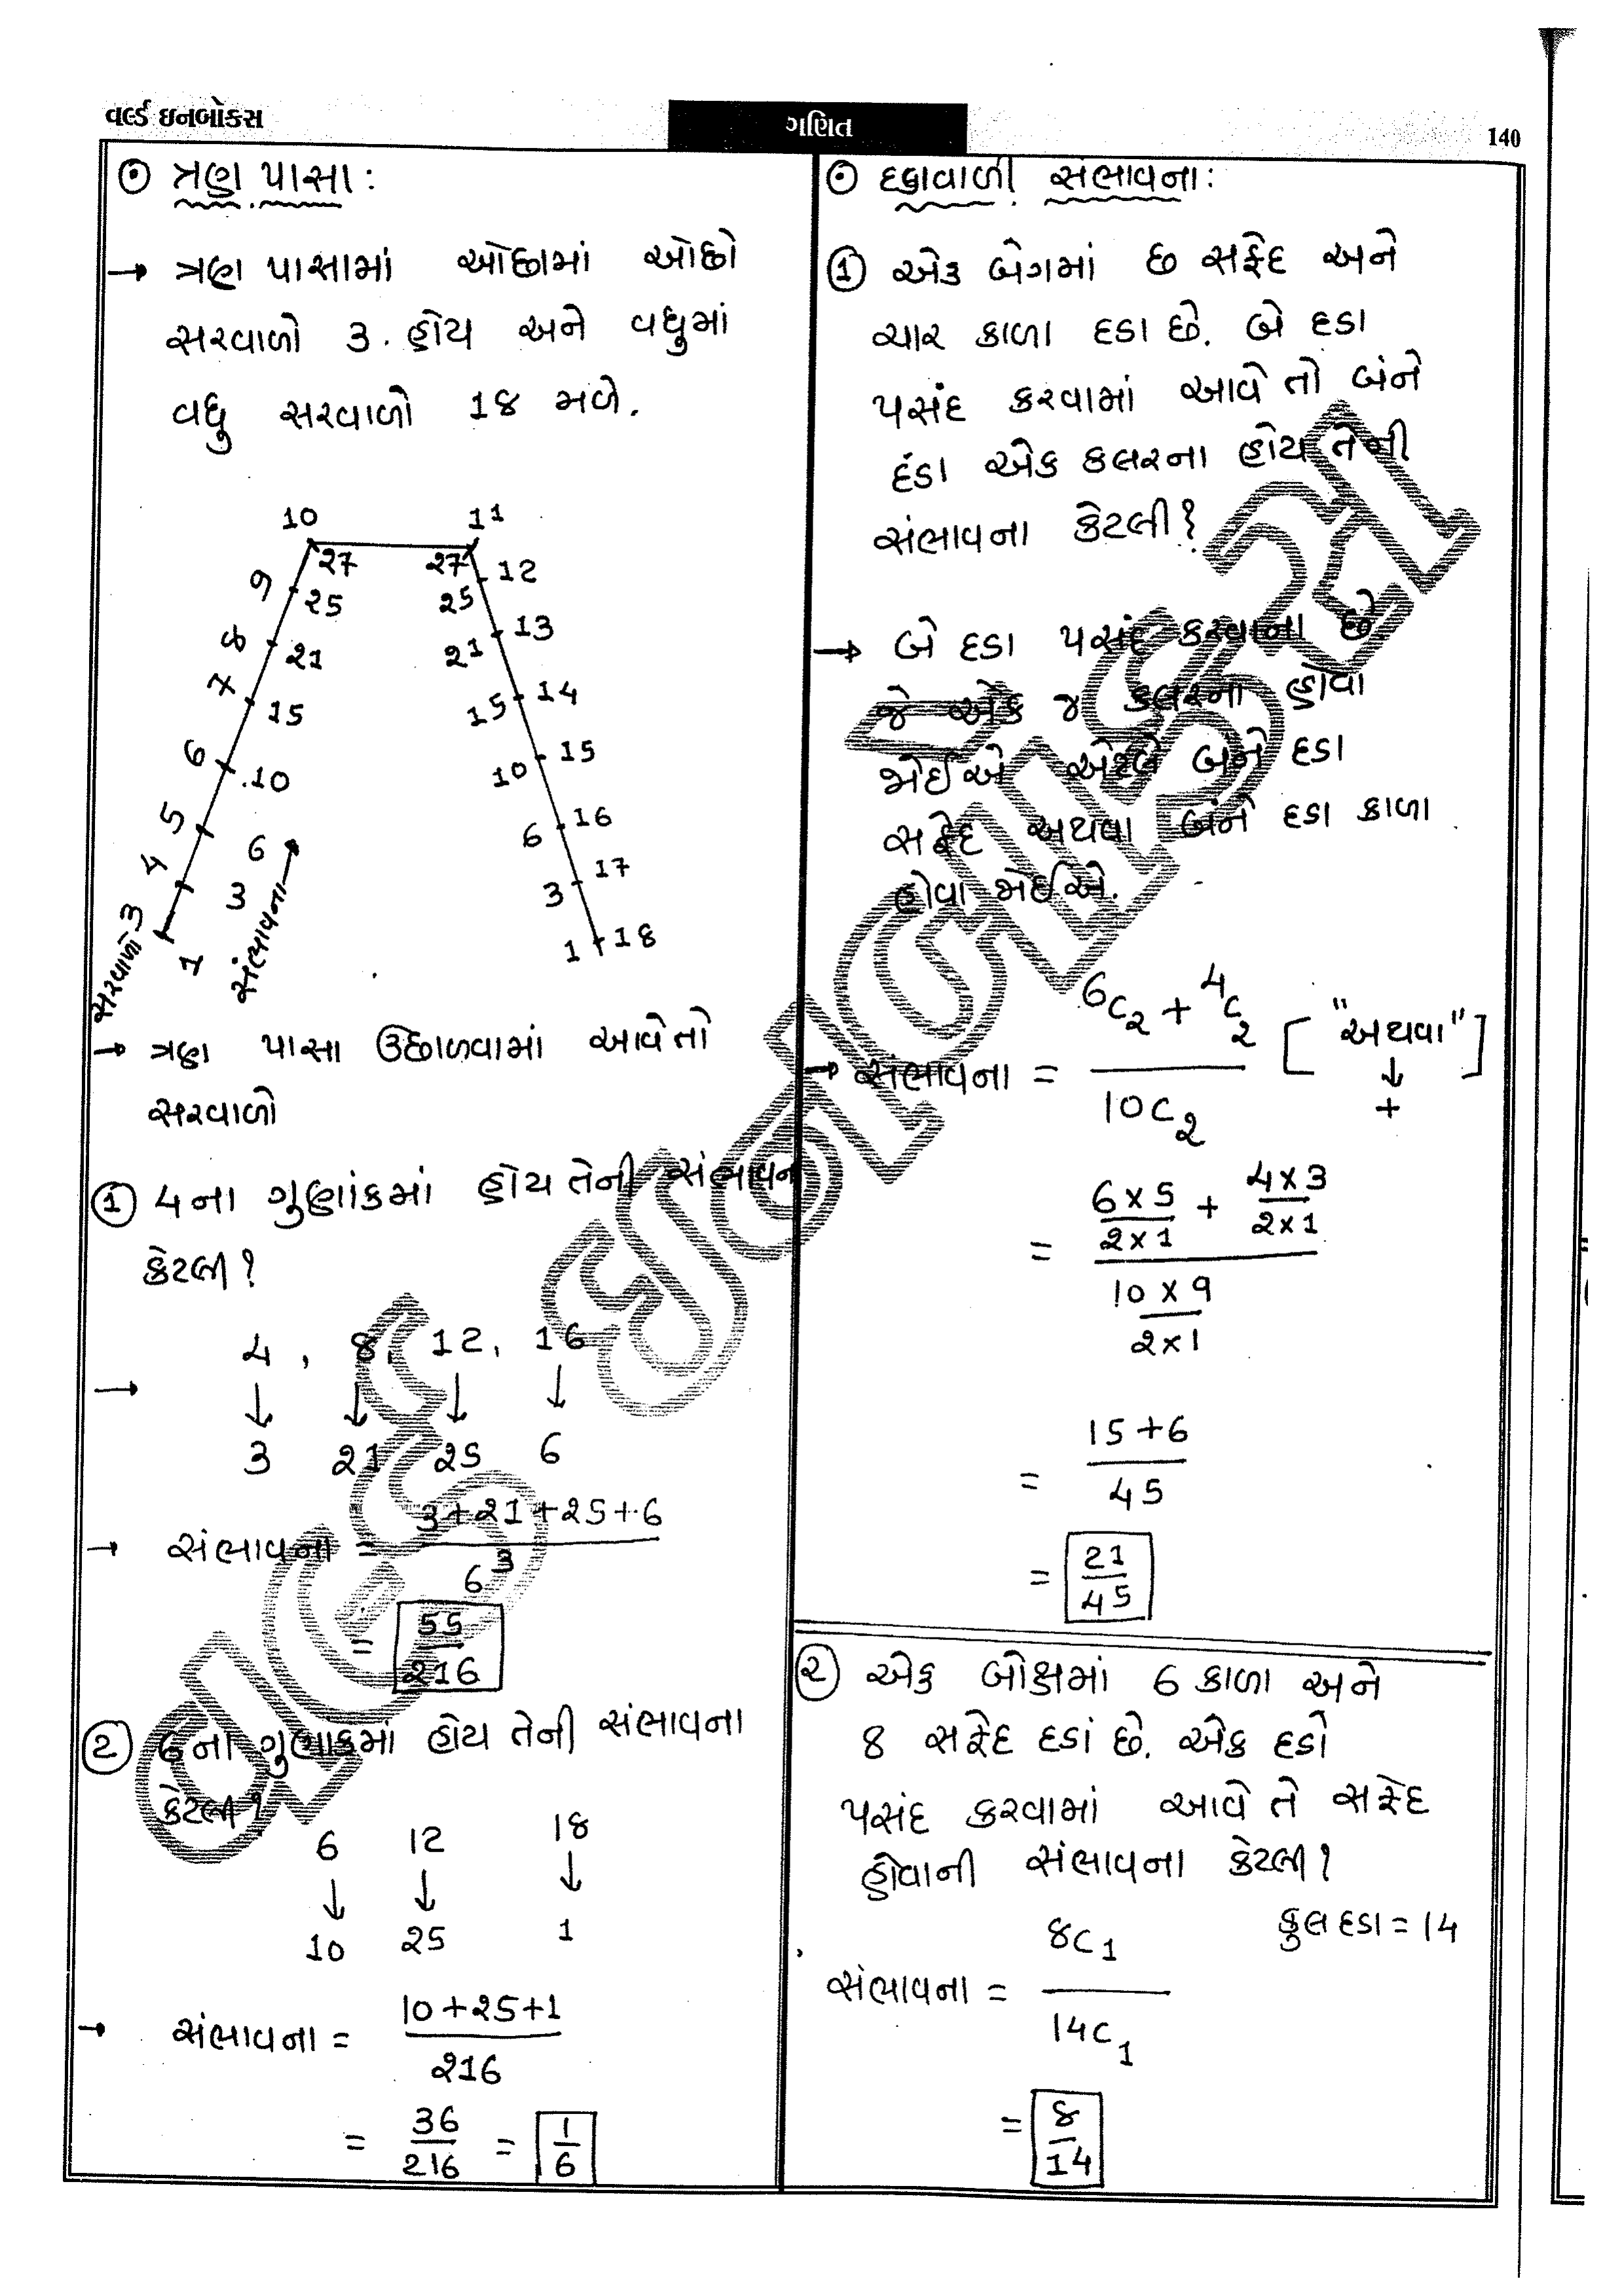 વર્લ્ડ ઇનબોક્સ
ગણિત
140
ત્રણ પાસા:
→ ત્રણ પાસામાં ઓછામાં ઓછો
સરવાળો 3 હોય અને વધુમાં
વધુ સરવાળો 18 મળે.
10 11
27 27
9 25 25 12
8 21 21 13
7 15 15 14
6 10 10 15
5 6 6 16
4 3 3 17
3 1 1 18
સરવાળો સંભાવના →
→ ત્રણ પાસા ઉછાળવામાં આવે તો
સરવાળો
① 4ના ગુણાંકમાં હોય તેની સંભાવના
કેટલી?
→ 4, 8, 12, 16
↓ ↓ ↓ ↓
3 21 25 6
→ સંભાવના = 3+21+25+6 / 6³
= 55/216
② 6ના ગુણાકમાં હોય તેની સંભાવના
કેટલી?
6 12 18
↓ ↓ ↓
10 25 1
→ સંભાવના = 10+25+1 / 216
= 36/216 = 1/6
દડાવાળી સંભાવના:
① એક બેગમાં છ સફેદ અને
ચાર કાળા દડા છે. બે દડા
પસંદ કરવામાં આવે તો બંને
દડા એક કલરના હોય તેની
સંભાવના કેટલી?
→ બે દડા પસંદ કરવાના છે
જે એક જ કલરના હોવા
જોઈએ એટલે બંને દડા
સફેદ અથવા બંને દડા કાળા
હોવા જોઈએ.
→ સંભાવના = 6C2 + 4C2 / 10C2 ["અથવા" ↓ +]
= 6×5/2×1 + 4×3/2×1 / 10×9/2×1
= 15+6 / 45
= 21/45
② એક બોક્ષમાં 6 કાળા અને
8 સફેદ દડાં છે. એક દડો
પસંદ કરવામાં આવે તે સફેદ
હોવાની સંભાવના કેટલી?
કુલ દડા = 14
સંભાવના = 8C1 / 14C1
= 8/14
વર્લ્ડ ઇનબોક્સ